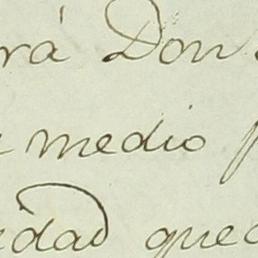 rá Don
medio
idad que